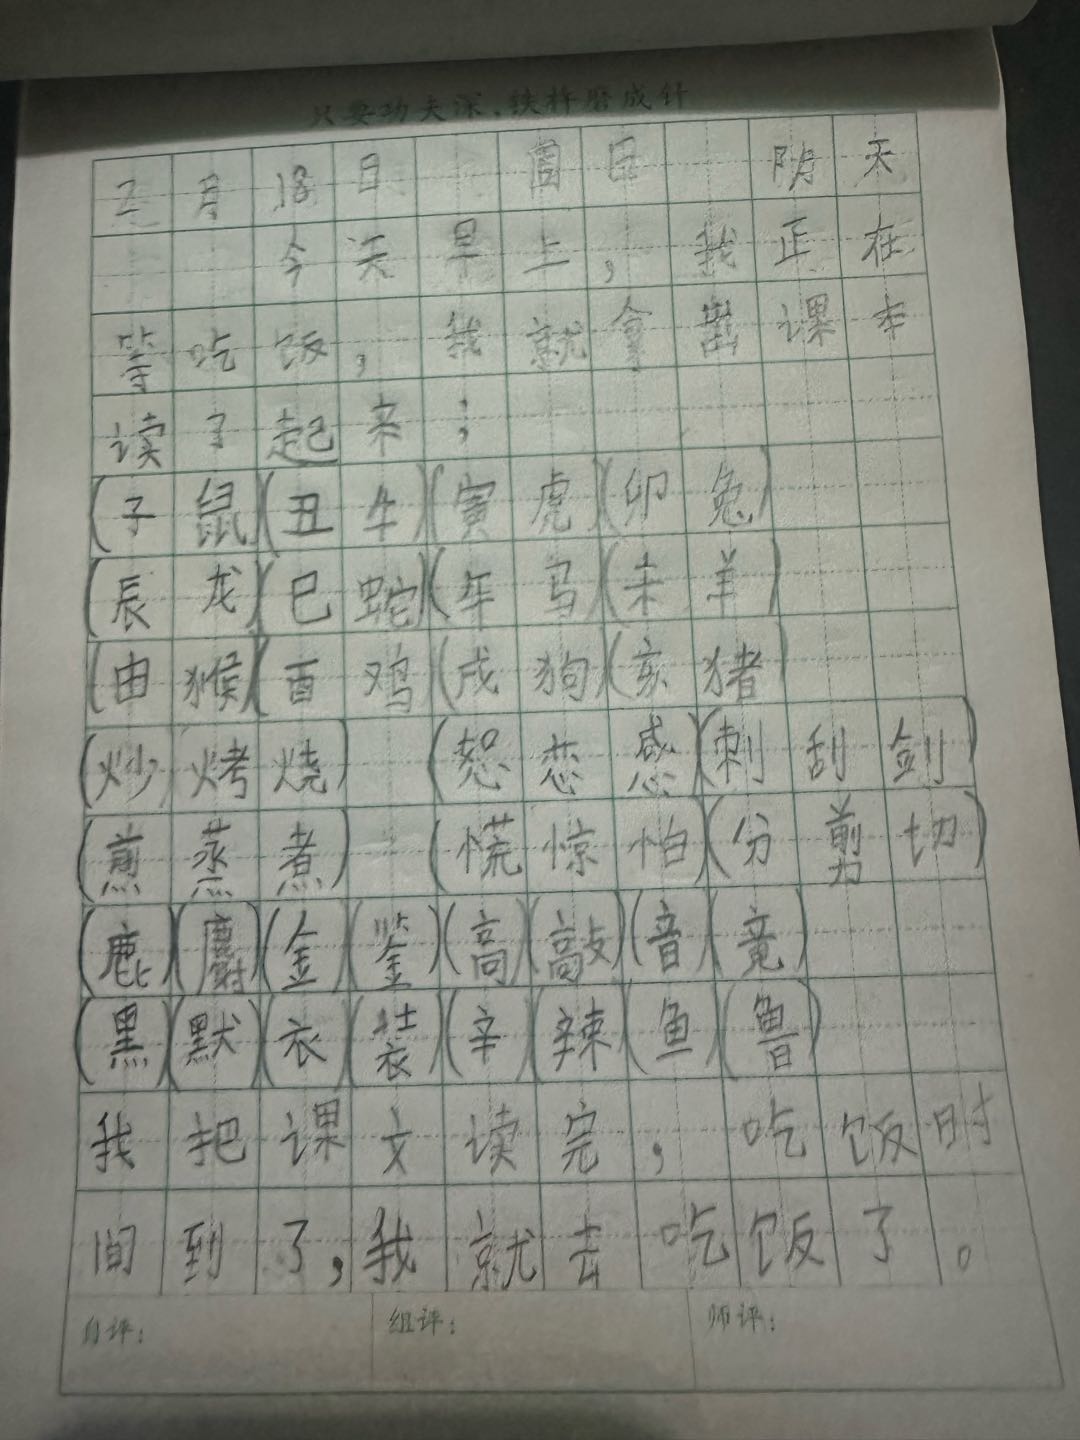 只要功夫深，铁杵磨成针
月18日 日 阴天
今天早上，我正在
等吃饭，我就拿出课本
读了起来；
(子鼠)(丑牛)(寅虎)(卯兔)
(辰龙)(巳蛇)(午马)(未羊)
(由猴)(酉鸡)(戌狗)(亥猪)
(炒烤烧) (恕恋感)(刺刮剑)
(煎蒸煮) (慌惊怕)(分剪切)
(鹿)(麝)(金)(鉴)(高)(敲)(音)(竟)
(黑)(默)(衣)(装)(辛)(辣)(鱼)(鲁)
我把课文读完，吃饭时
间到了，我就去吃饭了。
自评： 组评： 师评：